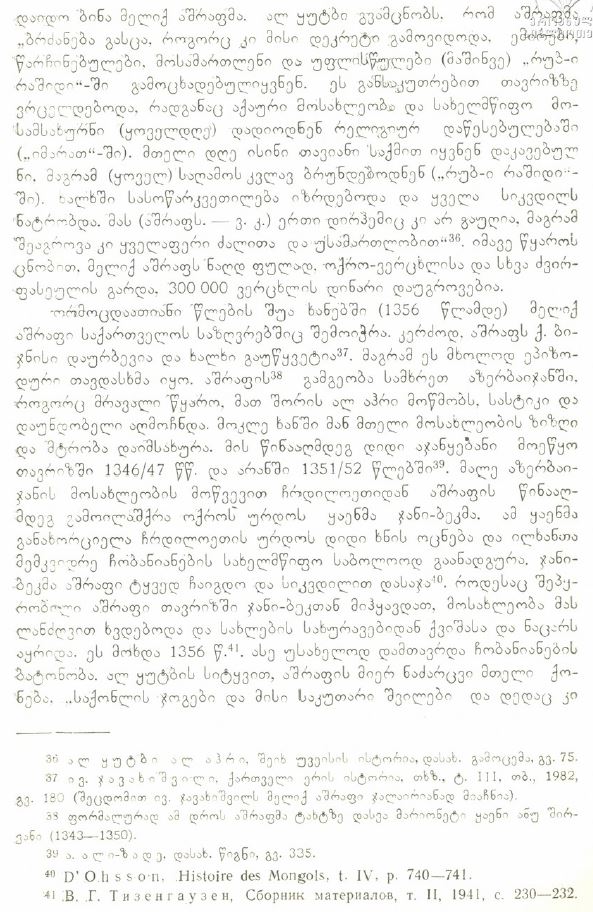 დაიდო ბინა მელიქ აშრაფმა. ალ ყუტბი გვამცნობს, რომ აშრაფმა
„ბრძანება გასცა, როგორც კი მისი დეკრეტი გამოვიდოდა, ემირები,
წარჩინებულები, მოსამართლენი და უფლისწულები (მაშინვე) „რუბ-ი
რაშიდი“-ში გამოცხადებულიყვნენ. ეს განსაკუთრებით თავრიზზე
ვრცელდებოდა, რადგანაც აქაური მოსახლეობა და სახელმწიფო მო-
სამსახურნი (ყოველდღე) დადიოდნენ რელიგიურ დაწესებულებაში
(„იმარათ“-ში). მთელი დღე ისინი თავიანი საქმით იყვნენ დაკავებულ
ნი, მაგრამ (ყოველ) საღამოს კვლავ ბრუნდებოდნენ („რუბ-ი რაშიდი“-
ში). ხალხში სასოწარკვეთილება იზრდებოდა და ყველა სიკვდილს
ნატრობდა. მას (აშრაფს. — ვ. კ.) ერთი დირჰემიც კი არ გაუღია, მაგრამ
შეაგროვა კი ყველაფერი ძალითა და უსამართლობით“³⁶. იმავე წყაროს
ცნობით, მელიქ აშრაფს ნაღდ ფულად, ოქრო-ვერცხლისა და სხვა ძვირ-
ფასეულის გარდა, 300 000 ვერცხლის დინარი დაუგროვებია.
ორმოცდაათიანი წლების შუა ხანებში (1356 წლამდე) მელიქ
აშრაფი საქართველოს საზღვრებშიც შემოიჭრა. კერძოდ, აშრაფს ქ. ბი-
ჯნისი დაურბევია და ხალხი გაუწყვეტია³⁷. მაგრამ ეს მხოლოდ ეპიზო-
დური თავდასხმა იყო. აშრაფის³⁸ გამგეობა სამხრეთ აზერბაიჯანში,
როგორც მრავალი წყარო, მათ შორის ალ აჰრი მოწმობს, სასტიკი და
დაუნდობელი აღმოჩნდა. მოკლე ხანში მან მთელი მოსახლეობის ზიზღი
და მტრობა დაიმსახურა. მის წინააღმდეგ დიდი აჯანყებანი მოეწყო
თავრიზში 1346/47 წწ. და არანში 1351/52 წლებში³⁹. მალე აზერბაი-
ჯანის მოსახლეობის მოწვევით ჩრდილოეთიდან აშრაფის წინააღ-
მდეგ გამოილაშქრა ოქროს ურდოს ყაენმა ჯანი-ბეკმა. ამ ყაენმა
განახორციელა ჩრდილოეთის ურდოს დიდი ხნის ოცნება და ილხანთა
მემკვიდრე ჩობანიანების სახელმწიფო საბოლოოდ გაანადგურა. ჯანი-
ბეკმა აშრაფი ტყვედ ჩაიგდო და სიკვდილით დასაჯა⁴⁰. როდესაც შეპყ-
რობილი აშრაფი თავრიზში ჯანი-ბეკთან მიჰყავდათ, მოსახლეობა მას
ლანძღვით ხვდებოდა და სახლების სახურავებიდან ქვიშასა და ნაცარს
აყრიდა. ეს მოხდა 1356 წ.⁴¹. ასე უსახელოდ დამთავრდა ჩობანიანების
ბატონობა. ალ ყუტბის სიტყვით, აშრაფის მიერ ნაძარცვი მთელი ქო-
ნება, „საქონლის ჯოგები და მისი საკუთარი შვილები და დედაც კი
36 ალ ყუტბი ალ აჰრი, შეიხ უვეისის ისტორია, დასახ. გამოცემა, გვ. 75.
37 ივ. ჯავახიშვილი, ქართველი ერის ისტორია, თხზ., ტ. III, თბ., 1982,
გვ. 180 (შეცდომით ივ. ჯავახიშვილს მელიქ აშრაფი ჯალაირიანად მიაჩნია).
38 ფორმალურად ამ დროს აშრაფმა ტახტზე დასვა მარიონეტი ყაენი ანუ შირ-
ვანი (1343—1350).
39 ა. ალი-ზადე, დასახ. წიგნი, გვ. 335.
⁴⁰ D'Ohsson, Histoire des Mongols, t. IV, p. 740—741.
⁴¹ В. Г. Тизенгаузен, Сборник материалов, т. II, 1941, с. 230—232.